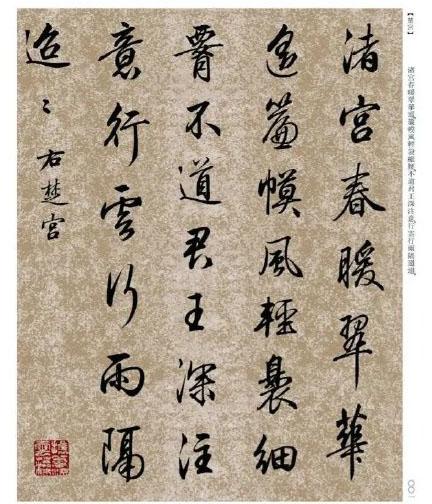 【楚宫】
渚宫春暖翠華遥,簾幙風輕裊細腰,不道君王深注意,行雲行雨隔迢迢。
渚宫春暖翠華
遥簾幙風輕裊細
腰不道君王深注
意行雲行雨隔
迢々右楚宫